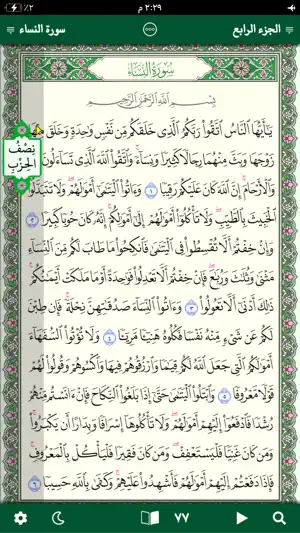 ٪٢ ٢:٢٩ م
الجزء الرابع سورة النساء
سُورَةُ النِّسَاءِ
بِسْمِ اللَّهِ الرَّحْمَٰنِ الرَّحِيمِ
يَٰٓأَيُّهَا ٱلنَّاسُ ٱتَّقُوا۟ رَبَّكُمُ ٱلَّذِى خَلَقَكُم مِّن نَّفْسٍ وَٰحِدَةٍ وَخَلَقَ مِنْهَا
زَوْجَهَا وَبَثَّ مِنْهُمَا رِجَالًا كَثِيرًا وَنِسَآءً ۚ وَٱتَّقُوا۟ ٱللَّهَ ٱلَّذِى تَسَآءَلُونَ بِهِۦ
وَٱلْأَرْحَامَ ۚ إِنَّ ٱللَّهَ كَانَ عَلَيْكُمْ رَقِيبًا ١ وَءَاتُوا۟ ٱلْيَتَٰمَىٰٓ أَمْوَٰلَهُمْ ۖ وَلَا تَتَبَدَّلُوا۟
ٱلْخَبِيثَ بِٱلطَّيِّبِ ۖ وَلَا تَأْكُلُوٓا۟ أَمْوَٰلَهُمْ إِلَىٰٓ أَمْوَٰلِكُمْ ۚ إِنَّهُۥ كَانَ حُوبًا كَبِيرًا ٢
وَإِنْ خِفْتُمْ أَلَّا تُقْسِطُوا۟ فِى ٱلْيَتَٰمَىٰ فَٱنكِحُوا۟ مَا طَابَ لَكُم مِّنَ ٱلنِّسَآءِ
مَثْنَىٰ وَثُلَٰثَ وَرُبَٰعَ ۖ فَإِنْ خِفْتُمْ أَلَّا تَعْدِلُوا۟ فَوَٰحِدَةً أَوْ مَا مَلَكَتْ أَيْمَٰنُكُمْ ۚ
ذَٰلِكَ أَدْنَىٰٓ أَلَّا تَعُولُوا۟ ٣ وَءَاتُوا۟ ٱلنِّسَآءَ صَدُقَٰتِهِنَّ نِحْلَةً ۚ فَإِن طِبْنَ
لَكُمْ عَن شَىْءٍ مِّنْهُ نَفْسًا فَكُلُوهُ هَنِيٓـًٔا مَّرِيٓـًٔا ٤ وَلَا تُؤْتُوا۟ ٱلسُّفَهَآءَ
أَمْوَٰلَكُمُ ٱلَّتِى جَعَلَ ٱللَّهُ لَكُمْ قِيَٰمًا وَٱرْزُقُوهُمْ فِيهَا وَٱكْسُوهُمْ وَقُولُوا۟ لَهُمْ
قَوْلًا مَّعْرُوفًا ٥ وَٱبْتَلُوا۟ ٱلْيَتَٰمَىٰ حَتَّىٰٓ إِذَا بَلَغُوا۟ ٱلنِّكَاحَ فَإِنْ ءَانَسْتُم مِّنْهُمْ
رُشْدًا فَٱدْفَعُوٓا۟ إِلَيْهِمْ أَمْوَٰلَهُمْ ۖ وَلَا تَأْكُلُوهَآ إِسْرَافًا وَبِدَارًا أَن يَكْبَرُوا۟ ۚ
وَمَن كَانَ غَنِيًّا فَلْيَسْتَعْفِفْ ۖ وَمَن كَانَ فَقِيرًا فَلْيَأْكُلْ بِٱلْمَعْرُوفِ ۚ
فَإِذَا دَفَعْتُمْ إِلَيْهِمْ أَمْوَٰلَهُمْ فَأَشْهِدُوا۟ عَلَيْهِمْ ۚ وَكَفَىٰ بِٱللَّهِ حَسِيبًا ٦
نِصْفُ
الحِزْبِ
٧٧